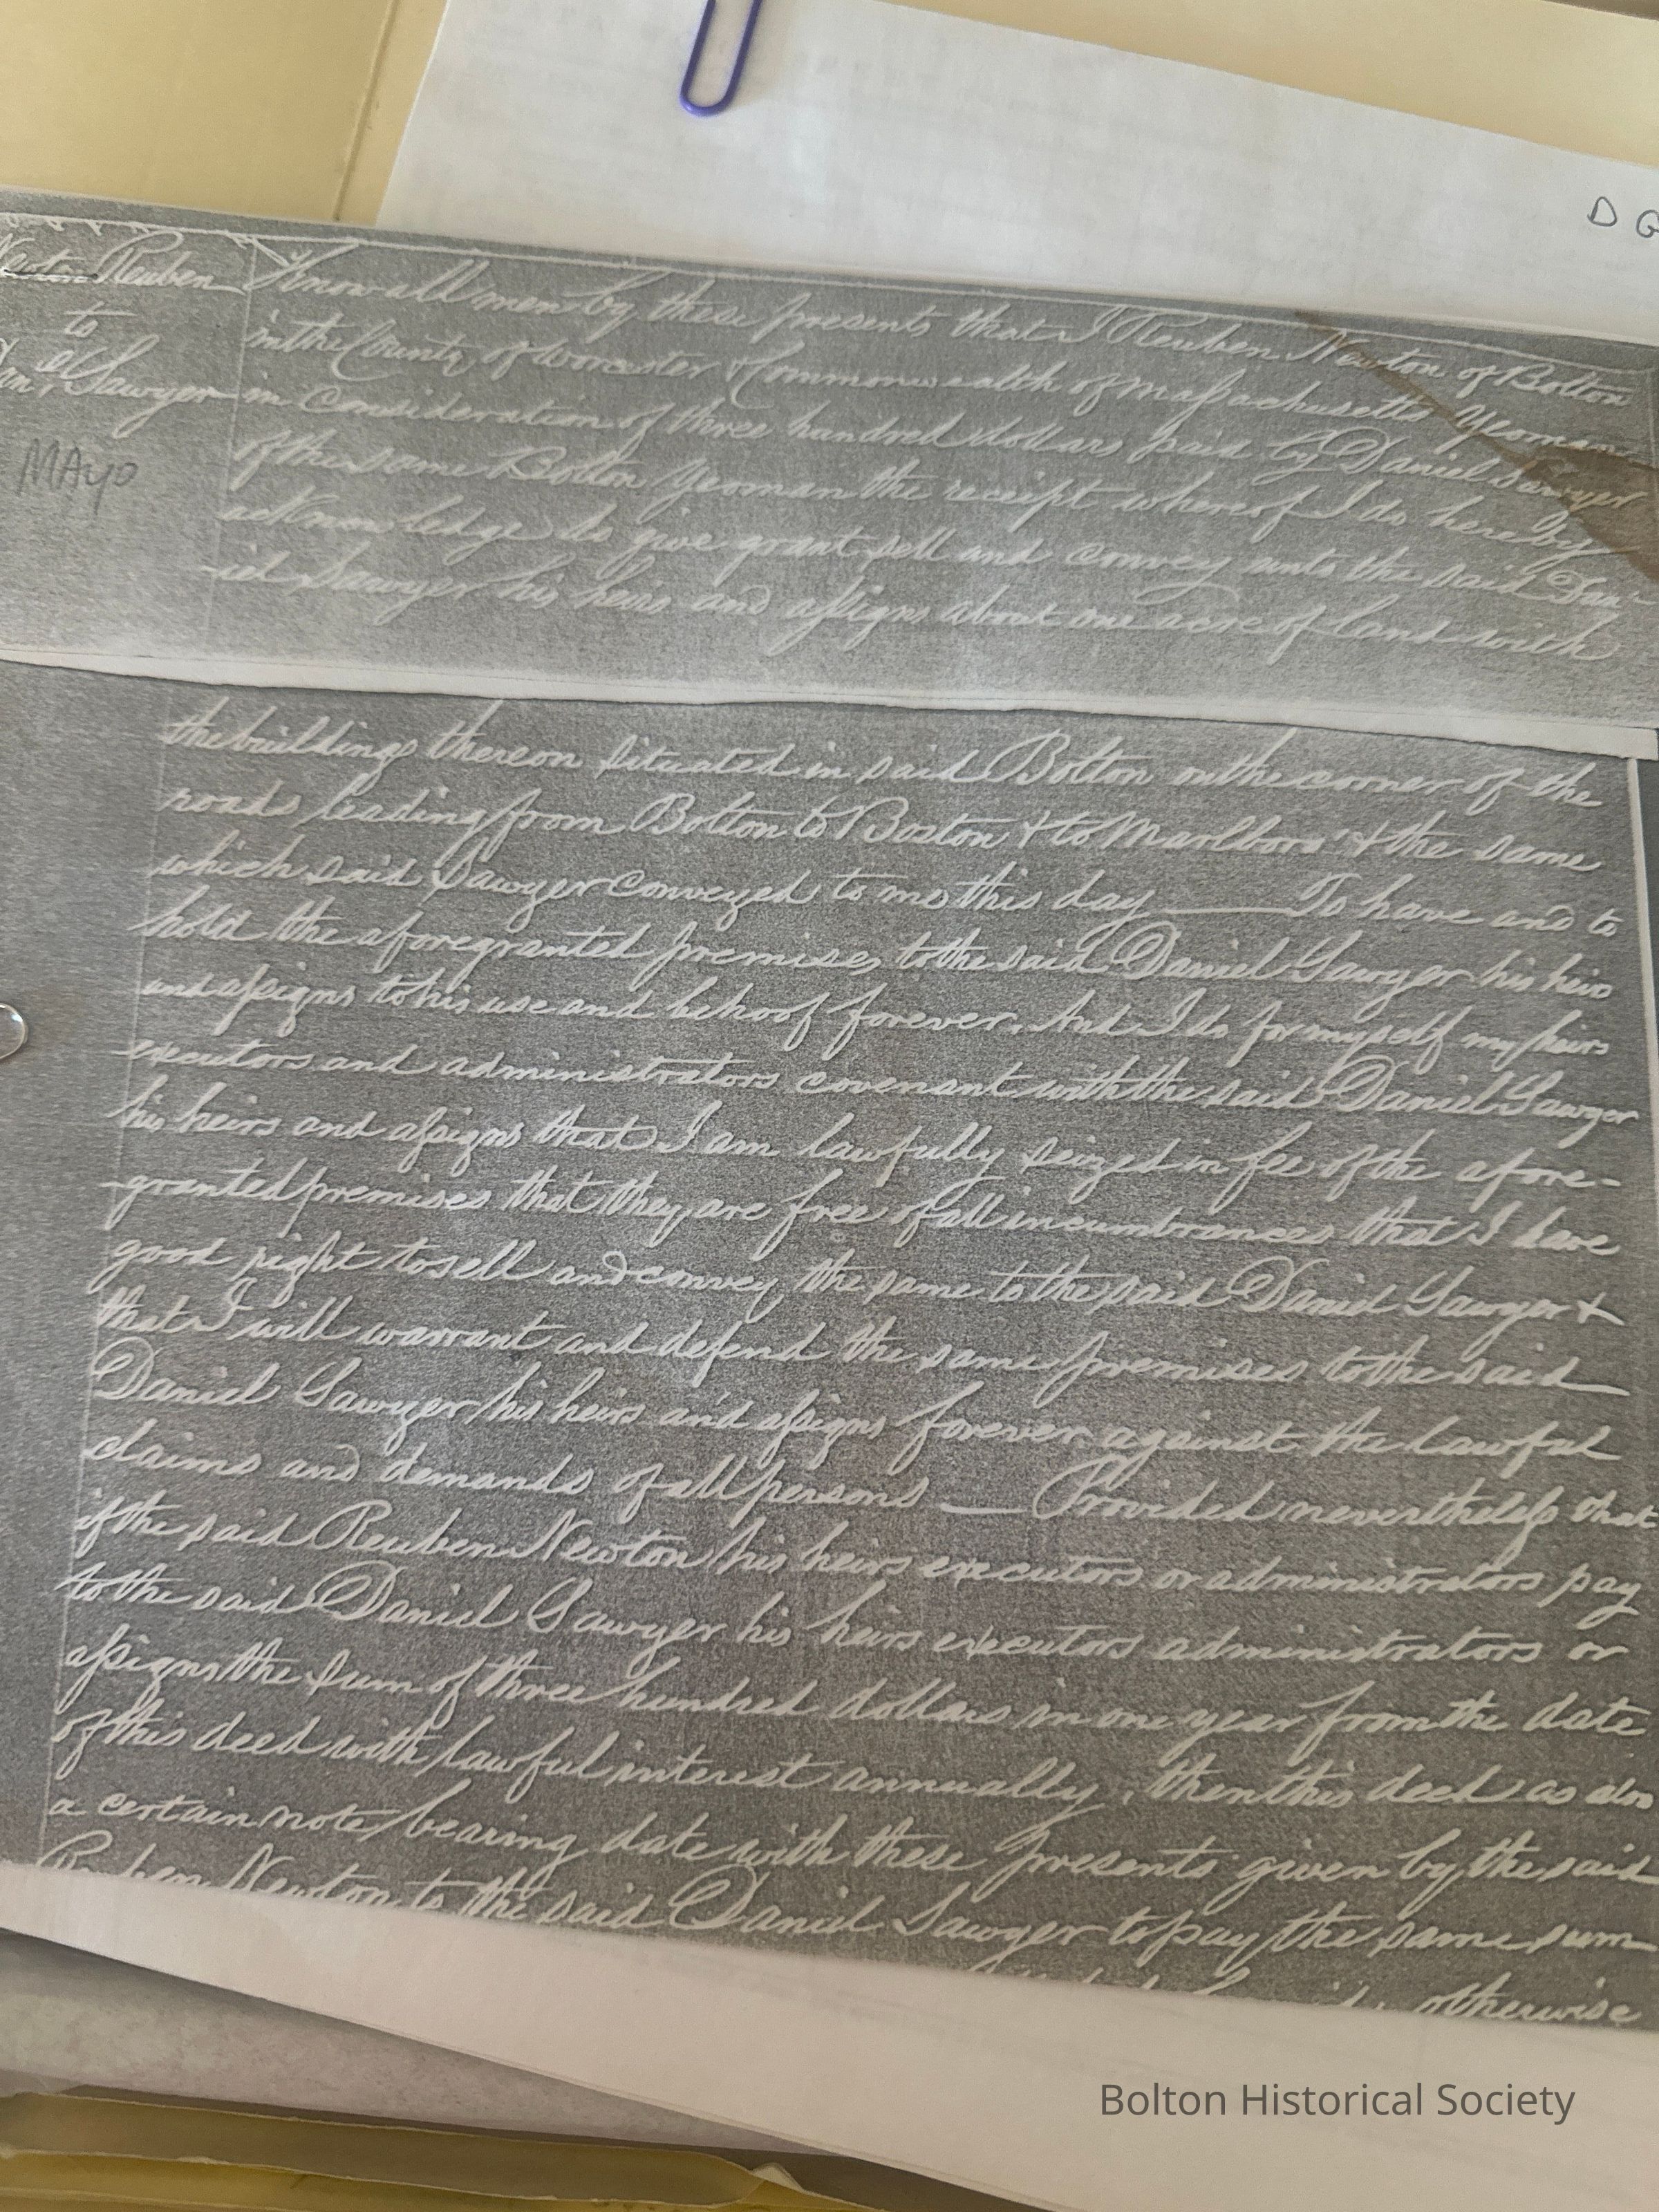 D G
Newton Reuben
to
Danl Sawyer
MAyo
Know all men by these presents that I Reuben Newton of Bolton
in the County of Worcester & Commonwealth of Massachusetts Yeoman
in consideration of three hundred dollars paid by Daniel Sawyer
of the same Bolton Yeoman the receipt whereof I do hereby
acknowledge do give grant sell and convey unto the said Dan-
-iel Sawyer his heirs and assigns about one acre of land with
the buildings thereon situated in said Bolton on the corner of the
roads leading from Bolton to Boston & to Marlboro' & the same
which said Sawyer conveyed to me this day — To have and to
hold the aforegranted premises to the said Daniel Sawyer his heirs
and assigns to his use and behoof forever. And I do for myself my heirs
executors and administrators covenant with the said Daniel Sawyer
his heirs and assigns that I am lawfully seized in fee of the afore-
granted premises that they are free of all incumbrances that I have
good right to sell and convey the same to the said Daniel Sawyer &
that I will warrant and defend the same premises to the said
Daniel Sawyer his heirs and assigns forever against the lawful
claims and demands of all persons — Provided nevertheless that
if the said Reuben Newton his heirs executors or administrators pay
to the said Daniel Sawyer his heirs executors administrators or
assigns the sum of three hundred dollars in one year from the date
of this deed with lawful interest annually, then this deed as also
a certain note bearing date with these presents given by the said
Reuben Newton to the said Daniel Sawyer to pay the same sum
otherwise
Bolton Historical Society